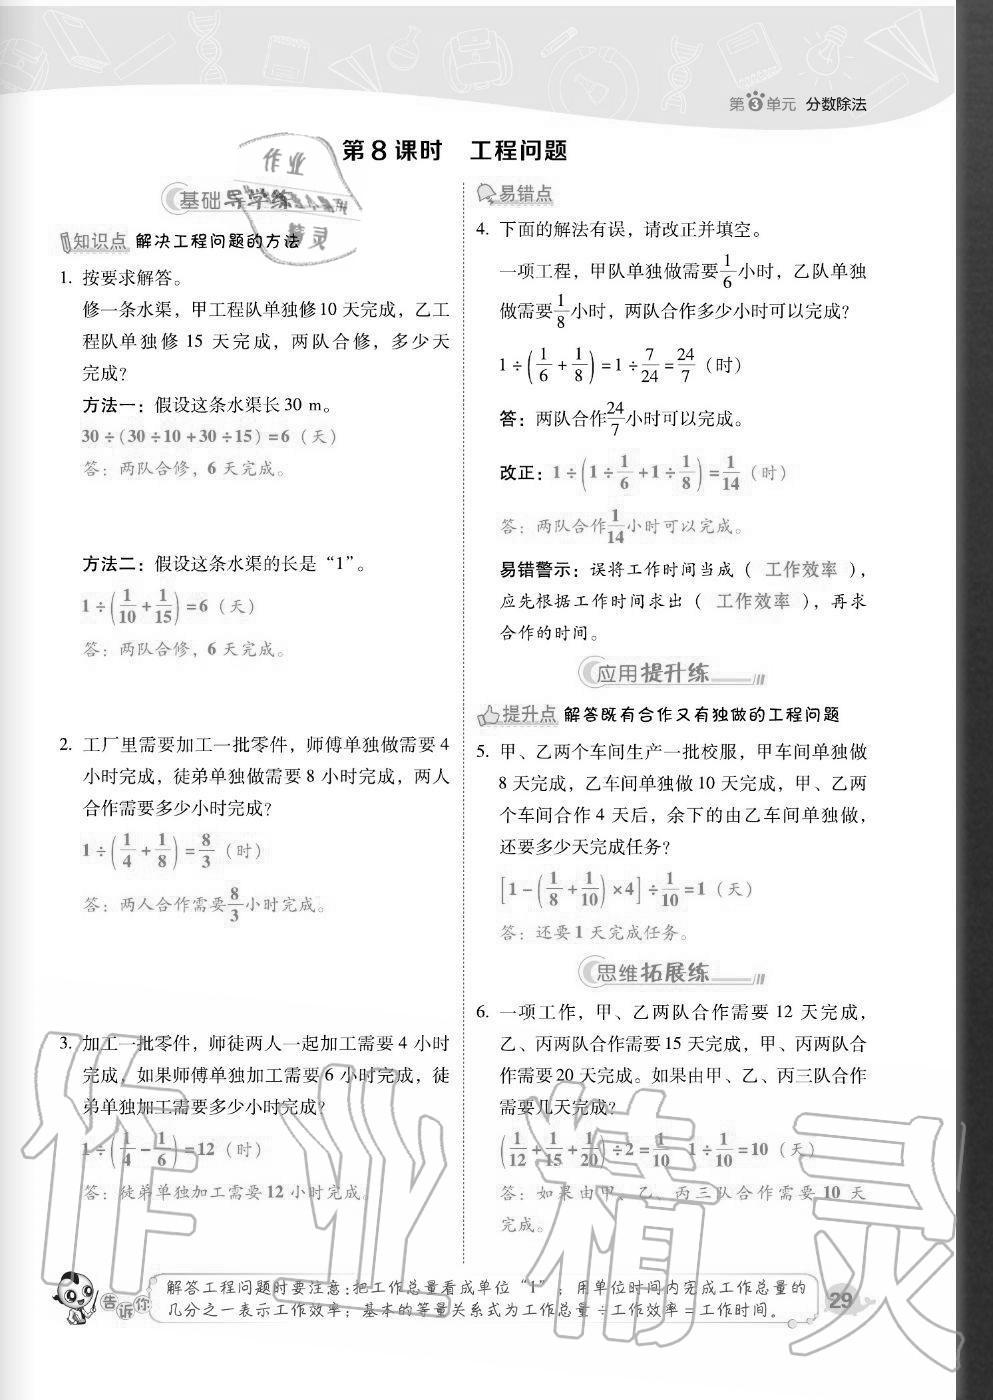 第3单元 分数除法
第8课时 工程问题
基础导学练
知识点 解决工程问题的方法
1. 按要求解答。
修一条水渠，甲工程队单独修10天完成，乙工
程队单独修 15 天完成，两队合修，多少天
完成?
方法一：假设这条水渠长30 m。
30÷(30÷10+30÷15)=6（天）
答：两队合修，6天完成。
方法二：假设这条水渠的长是“1”。
1÷(1/10+1/15)=6（天）
答：两队合修，6天完成。
2. 工厂里需要加工一批零件，师傅单独做需要4
小时完成，徒弟单独做需要 8 小时完成，两人
合作需要多少小时完成?
1÷(1/4+1/8)=8/3（时）
答：两人合作需要8/3小时完成。
3. 加工一批零件，师徒两人一起加工需要4 小时
完成，如果师傅单独加工需要6小时完成，徒
弟单独加工需要多少小时完成?
1÷(1/4-1/6)=12（时）
答：徒弟单独加工需要12小时完成。
易错点
4. 下面的解法有误，请改正并填空。
一项工程，甲队单独做需要1/6小时，乙队单独
做需要1/8小时，两队合作多少小时可以完成?
1÷(1/6+1/8)=1÷7/24=24/7（时）
答：两队合作24/7小时可以完成。
改正：1÷(1÷1/6+1÷1/8)=1/14（时）
答：两队合作1/14小时可以完成。
易错警示：误将工作时间当成（ 工作效率 ），
应先根据工作时间求出（ 工作效率 ），再求
合作的时间。
应用提升练
提升点 解答既有合作又有独做的工程问题
5. 甲、乙两个车间生产一批校服，甲车间单独做
8天完成，乙车间单独做10天完成，甲、乙两
个车间合作4天后，余下的由乙车间单独做，
还要多少天完成任务?
[1-(1/8+1/10)×4]÷1/10=1（天）
答：还要1天完成任务。
思维拓展练
6. 一项工作，甲、乙两队合作需要 12 天完成，
乙、丙两队合作需要15天完成，甲、丙两队合
作需要20天完成。如果由甲、乙、丙三队合作
需要几天完成?
(1/12+1/15+1/20)÷2=1/10 1÷1/10=10（天）
答：如果由甲、乙、丙三队合作需要 10 天
完成。
告诉你
解答工程问题时要注意：把工作总量看成单位“1”；用单位时间内完成工作总量的
几分之一表示工作效率；基本的等量关系式为工作总量÷工作效率=工作时间。
29
作业精灵
作业
精灵